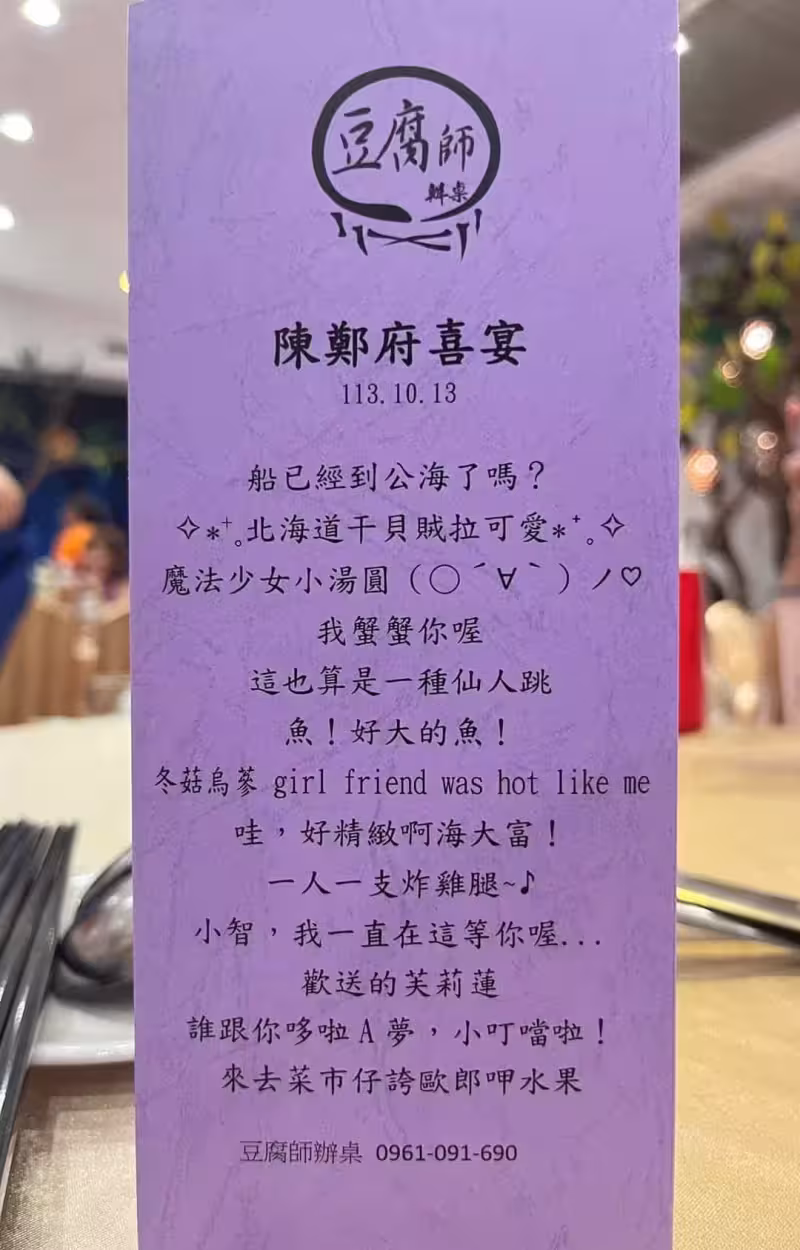 豆腐師
辦桌
陳鄭府喜宴
113.10.13
船已經到公海了嗎？
✧*⁺˳北海道干貝賊拉可愛*⁺˳✧
魔法少女小湯圓（◯ˊ∀ˋ）ノ♡
我蟹蟹你喔
這也算是一種仙人跳
魚！好大的魚！
冬菇烏蔘 girl friend was hot like me
哇，好精緻啊海大富！
一人一支炸雞腿~♪
小智，我一直在這等你喔...
歡送的芙莉蓮
誰跟你哆啦A夢，小叮噹啦！
來去菜市仔誇歐郎呷水果
豆腐師辦桌 0961-091-690